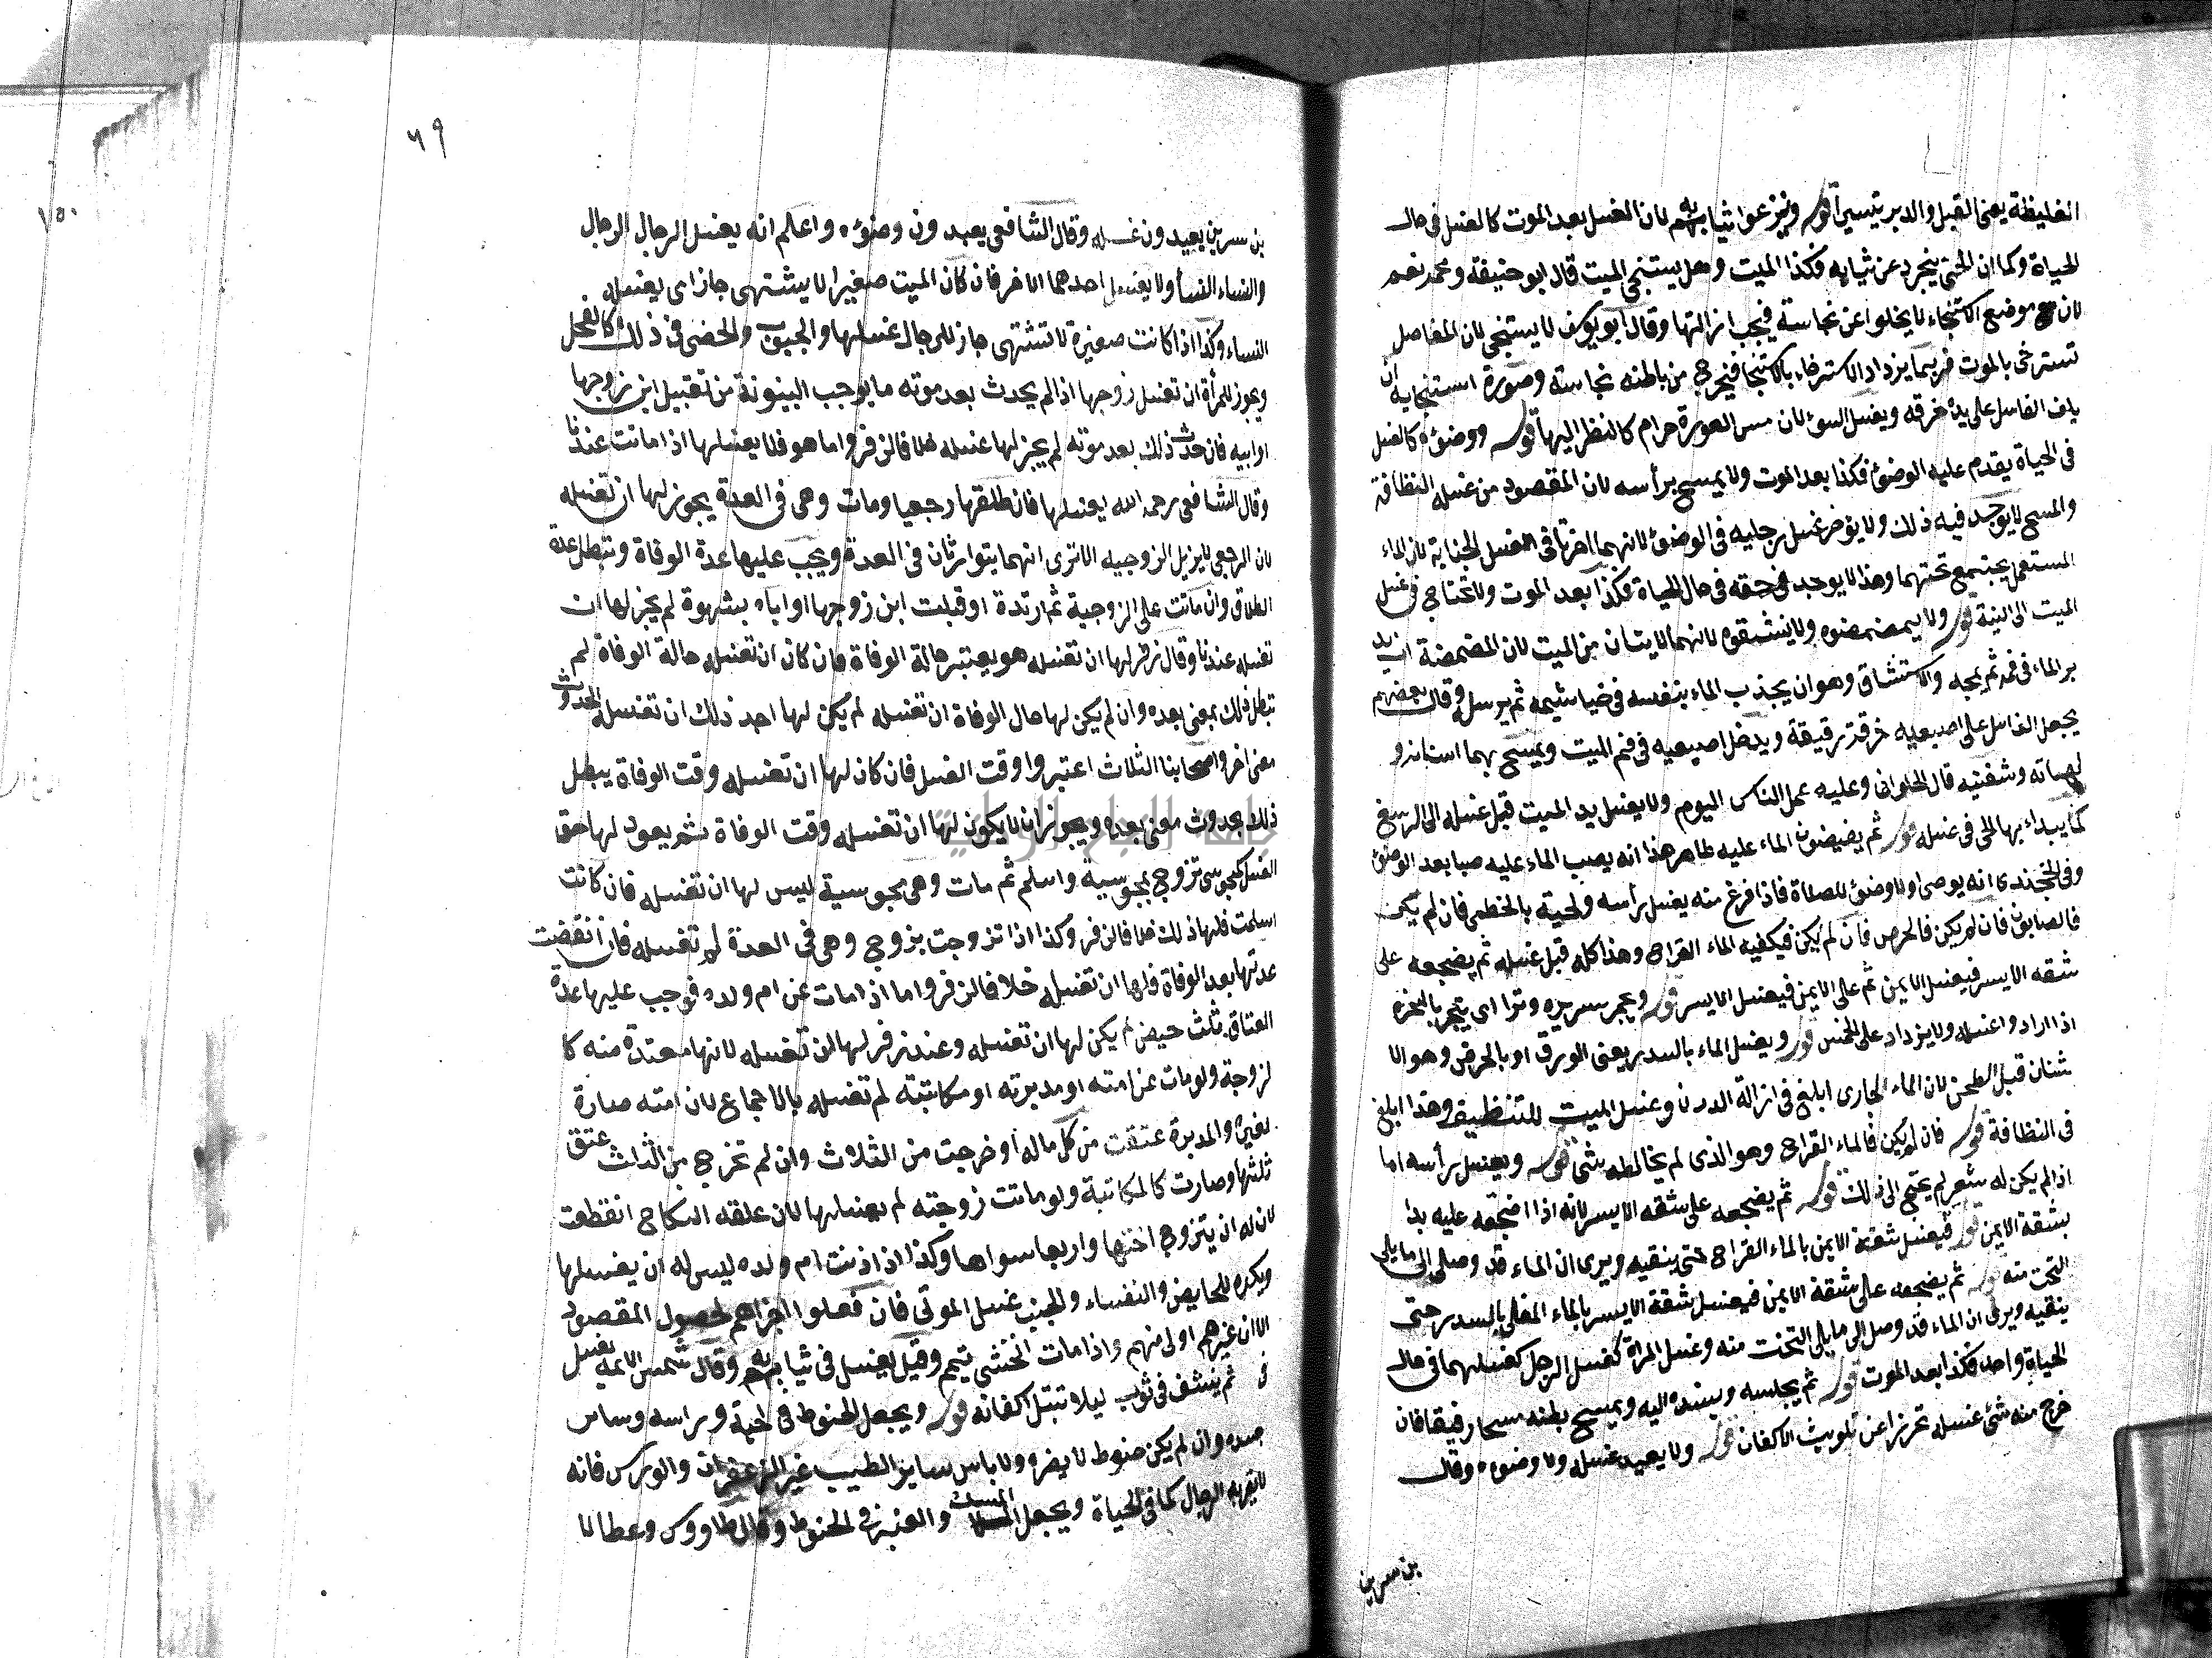 الغليظة يعنى القبل والدبر تيسيرا قوله ونزعوا ثيابه لان الغسل بعد الموت كالغسل فى حال
الحياة وكما ان الحى يتجرد عن ثيابه فكذا الميت وهل يستنجى الميت قال ابو حنيفة ومحمد نعم
لان موضع الاستنجاء لا يخلوا عن نجاسة فيجب ازالتها وقال ابو يوسف لا يستنجى لان المفاصل
تسترخى بالموت فربما يزداد الاسترخاء بالاستنجا فيخرج من باطنه نجاسة وصورة استنجايه ان
يلف الغاسل على يده خرقه ويغسل السوءة لان مس العورة حرام كالنظر اليها قوله ووضؤه كالغسل
فى الحياة يقدم عليه الوضوء فكذا بعد الموت ولا يمسح برأسه لان المقصود من غسله النظافة
والمسح لا يوجد فيه ذلك ولا يؤخر غسل رجليه فى الوضوء لانهما اخرتا فى الغسل الجنابة لان الماء
المستعمل يجتمع تحتهما وهذا لا يوجد فى حقه فى حال الحياة فكذا بعد الموت ولا تحتاج فى غسل
الميت الى النية قوله ولا يمضمضوه ولا ينشقوه لانهما لا يتأتان من الميت لان المضمضة ان يد
بر الماء فى فمه ثم يمجه والاستنشاق وهو ان يجذب الماء بنفسه فى خياشيمه ثم يرسله وقال بعضهم
يجعل الغاسل على اصبعيه خرقة رقيقة ويدخل اصبعيه فى فم الميت ويمسح بهما اسنانه و
لهاته وشفتيه قال الحلوانى وعليه عمل الناس اليوم ولا يغسل يد الميت قبل غسله الى الرسغ
كما يبداء بها الحى فى غسله قوله ثم يفيضون الماء عليه ظاهر هذا انه يصب الماء عليه صبا بعد الوضوء
وفى الخجندى انه يوضى اولا وضوء للصلاة فاذا فرغ منه يغسل رأسه ولحيته بالخطمى فان لم يكن
فالصابون فان لم يكن فالحرض فان لم يكن فيكفيه الماء القراح وهذا كله قبل غسله ثم يضجعه على
شقه الايسر فيغسل الايمن ثم على الايمن فيغسل الايسر قوله ويجمر سريره وترا اى يتجر بالبخرة
اذا ارادوا غسله ولا يزداد على الخمس قوله ويغسل الماء بالسدر يعنى الورق او بالحرض وهو الا
شنان قبل الطحن لان الماء الجارى ابلغ فى ازالة الدرن وغسل الميت للتنظيف وهذا ابلغ
فى النظافة قوله فان لم يكن فالماء القراح وهو الذى لم يخالطه شئ قوله ويغسل رأسه اما
اذا لم يكن له شعر لم يحتج الى ذلك قوله ثم يضجعه على شقه الايسر لانه اذا اضجعه عليه بدا
بشقه الايمن قوله فيغسل شقه الايمن بالماء القراح حتى ينقيه ويرى ان الماء قد وصل الى ما يلى
التحت منه قوله ثم يضجعه على شقة الايمن فيغسل شقة الايسر بالماء المغلى بالسدر حتى
ينقيه ويرى ان الماء قد وصل الى ما يلى التخت منه وغسل المراة كغسل الرجل كغسلهما فى حال
الحياة واحد فكذا بعد الموت قوله ثم يجلسه ويسنده اليه ويمسح بطنه مسحا رفيقا فان
خرج منه شئ غسله تحرزا عن تلويث الاكفان قوله ولا يعيد غسله ولا وضوءه وقال
بن سرين
٦٩
١٥٠
بن سرين يعيدون غسله وقال الشافعى يعيدون وضوءه واعلم انه يغسل الرجال الرجال
والنساء النسأ ولا يغسل احدهما الاخر فان كان الميت صغيرا لا يشتهى جاز اى يغسله
النساء وكذا اذا كانت صغيرة لا تشتهى جاز للرجال غسلها والمجبوب والخصى فى ذلك كالفحل
ويجوز للمرأة ان تغسل زوجها اذا لم يحدث بعد موته ما يوجب البينونة من تقبيل ابن زوجها
او ابيه فان حدث ذلك بعد موته لم يجز لها غسله خلافا لزفر واما هو فلا يغسلها اذا ماتت عندنا
وقال الشافعى رحمه الله يغسلها فان طلقها رجعيا ومات وهى فى العدة يجوز لها ان تغسله
لان الرجعى لا يزيل الزوجيه الا ترى انهما يتوارثان فى العدة ويجب عليها عدة الوفاة وتبطل عدة
الطلاق وان ماتت على الزوجية ثم ارتدة او قبلت ابن زوجها او اباه بشهوة لم يجز لها ان
تغسله عندنا وقال زفر لها ان تغسله هو يعتبر حالة الوفاة فان كان ان تغسله حالة الوفاة لم
تبطل ذلك بمعنى بعده وان لم يكن لها حال الوفاة ان تغسله لم يكن لها احد ذلك ان تغسله لحدوث
معنى اخر واصحابنا الثلاث اعتبروا وقت الغسل فان كان لها ان تغسله وقت الوفاة يبطل
ذلك بحدوث معنى بعده ويجوز ان لا يكون لها ان تغسله وقت الوفاة ثم يعود لها حق
الغسل كمجوسى تزوج بمجوسية واسلم ثم مات وهى مجوسية ليس لها ان تغسله فان كانت
اسلمت فلها ذلك خلافا لزفر وكذا اذا تزوجت بزوج وهى فى العدة لم تغسله فان انقضت
عدتها بعد الوفاة فلها ان تغسله خلافا لزفر واما اذا مات عن ام ولده فوجب عليها عدة
العتاق ثلث حيض لم يكن لها ان تغسله وعند زفر لها ان تغسله لانها معتدة منه كا
لزوجة ولو مات عن امته او مدبرته او مكاتبته لم تغسله بالاجماع لان امته صارة
لغيره والمدبرة عتقت من كل ماله او خرجت من الثلاث وان لم تخرج من الثلث عتق
ثلثها وصارت كالمكاتبة ولو ماتت زوجته لم يغسلها لان علقه النكاح انقطعت
لان له ان يتزوج اختها واربعا سواها وكذا اذا ماتت ام ولده ليس له ان يغسلها
ويكره للحايض والنفساء والجنب غسل الموتى فان فعلوا اجزاهم لحصول المقصود
الا ان غيرهم اولى منهم واذا مات الخنثى تيمم وقيل يغسل فى ثيابه وقال شمس الائمة يغسل
فى ثم ينشف فى ثوب ليلا تبتل اكفانه قوله ويجعل الحنوط فى لحية وراسه وساير
جسده وان لم يكن حنوط لا يضره ولا باس بساير الطيب غير الزعفران والورس فانه
لا يقربه الرجال كما فى الحياة ويجعل المسك والعنبر فى الحنوط وقال طاووس وعطا لا